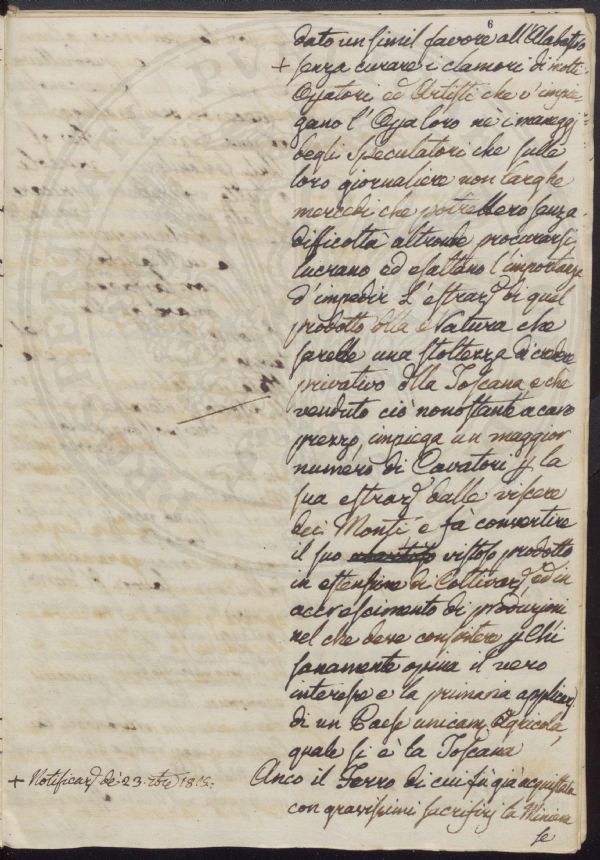 6
dato un simil favore all'Alabastro
+ senza curare i clamori di molti
Operatori ed Artisti che v'impie-
gano l'Opra loro nè i maneggj
degli Speculatori che sulle
loro giornaliere non larghe
mercedi che potrebbero senza
difficoltà altronde procurarsi,
lucrano ed esaltano l'importanza
d'impedir l'estraz.e di quel
prodotto della Natura che
sarebbe una stoltezza di credere
privativo della Toscana, e che
venduto ciò nonostante a caro
prezzo, impiega un maggior
numero di Cavatori p la
sua estraz.e dalle viscere
dei Monti e fà convertire
il suo vistoso prodotto
in estensione di Coltivaz.e, ed in
accrescimento di produzioni
nel che deve consistere p Chi
sanamente opina il vero
interesse e la primaria applicaz.e
di un Paese unicam.e Agricola,
quale si è la Toscana
+ Notificaz.e de' 23. 1815.
Anco il Ferro di cui fù già acquistata
con gravissimi sacrifizj la Miniera
se